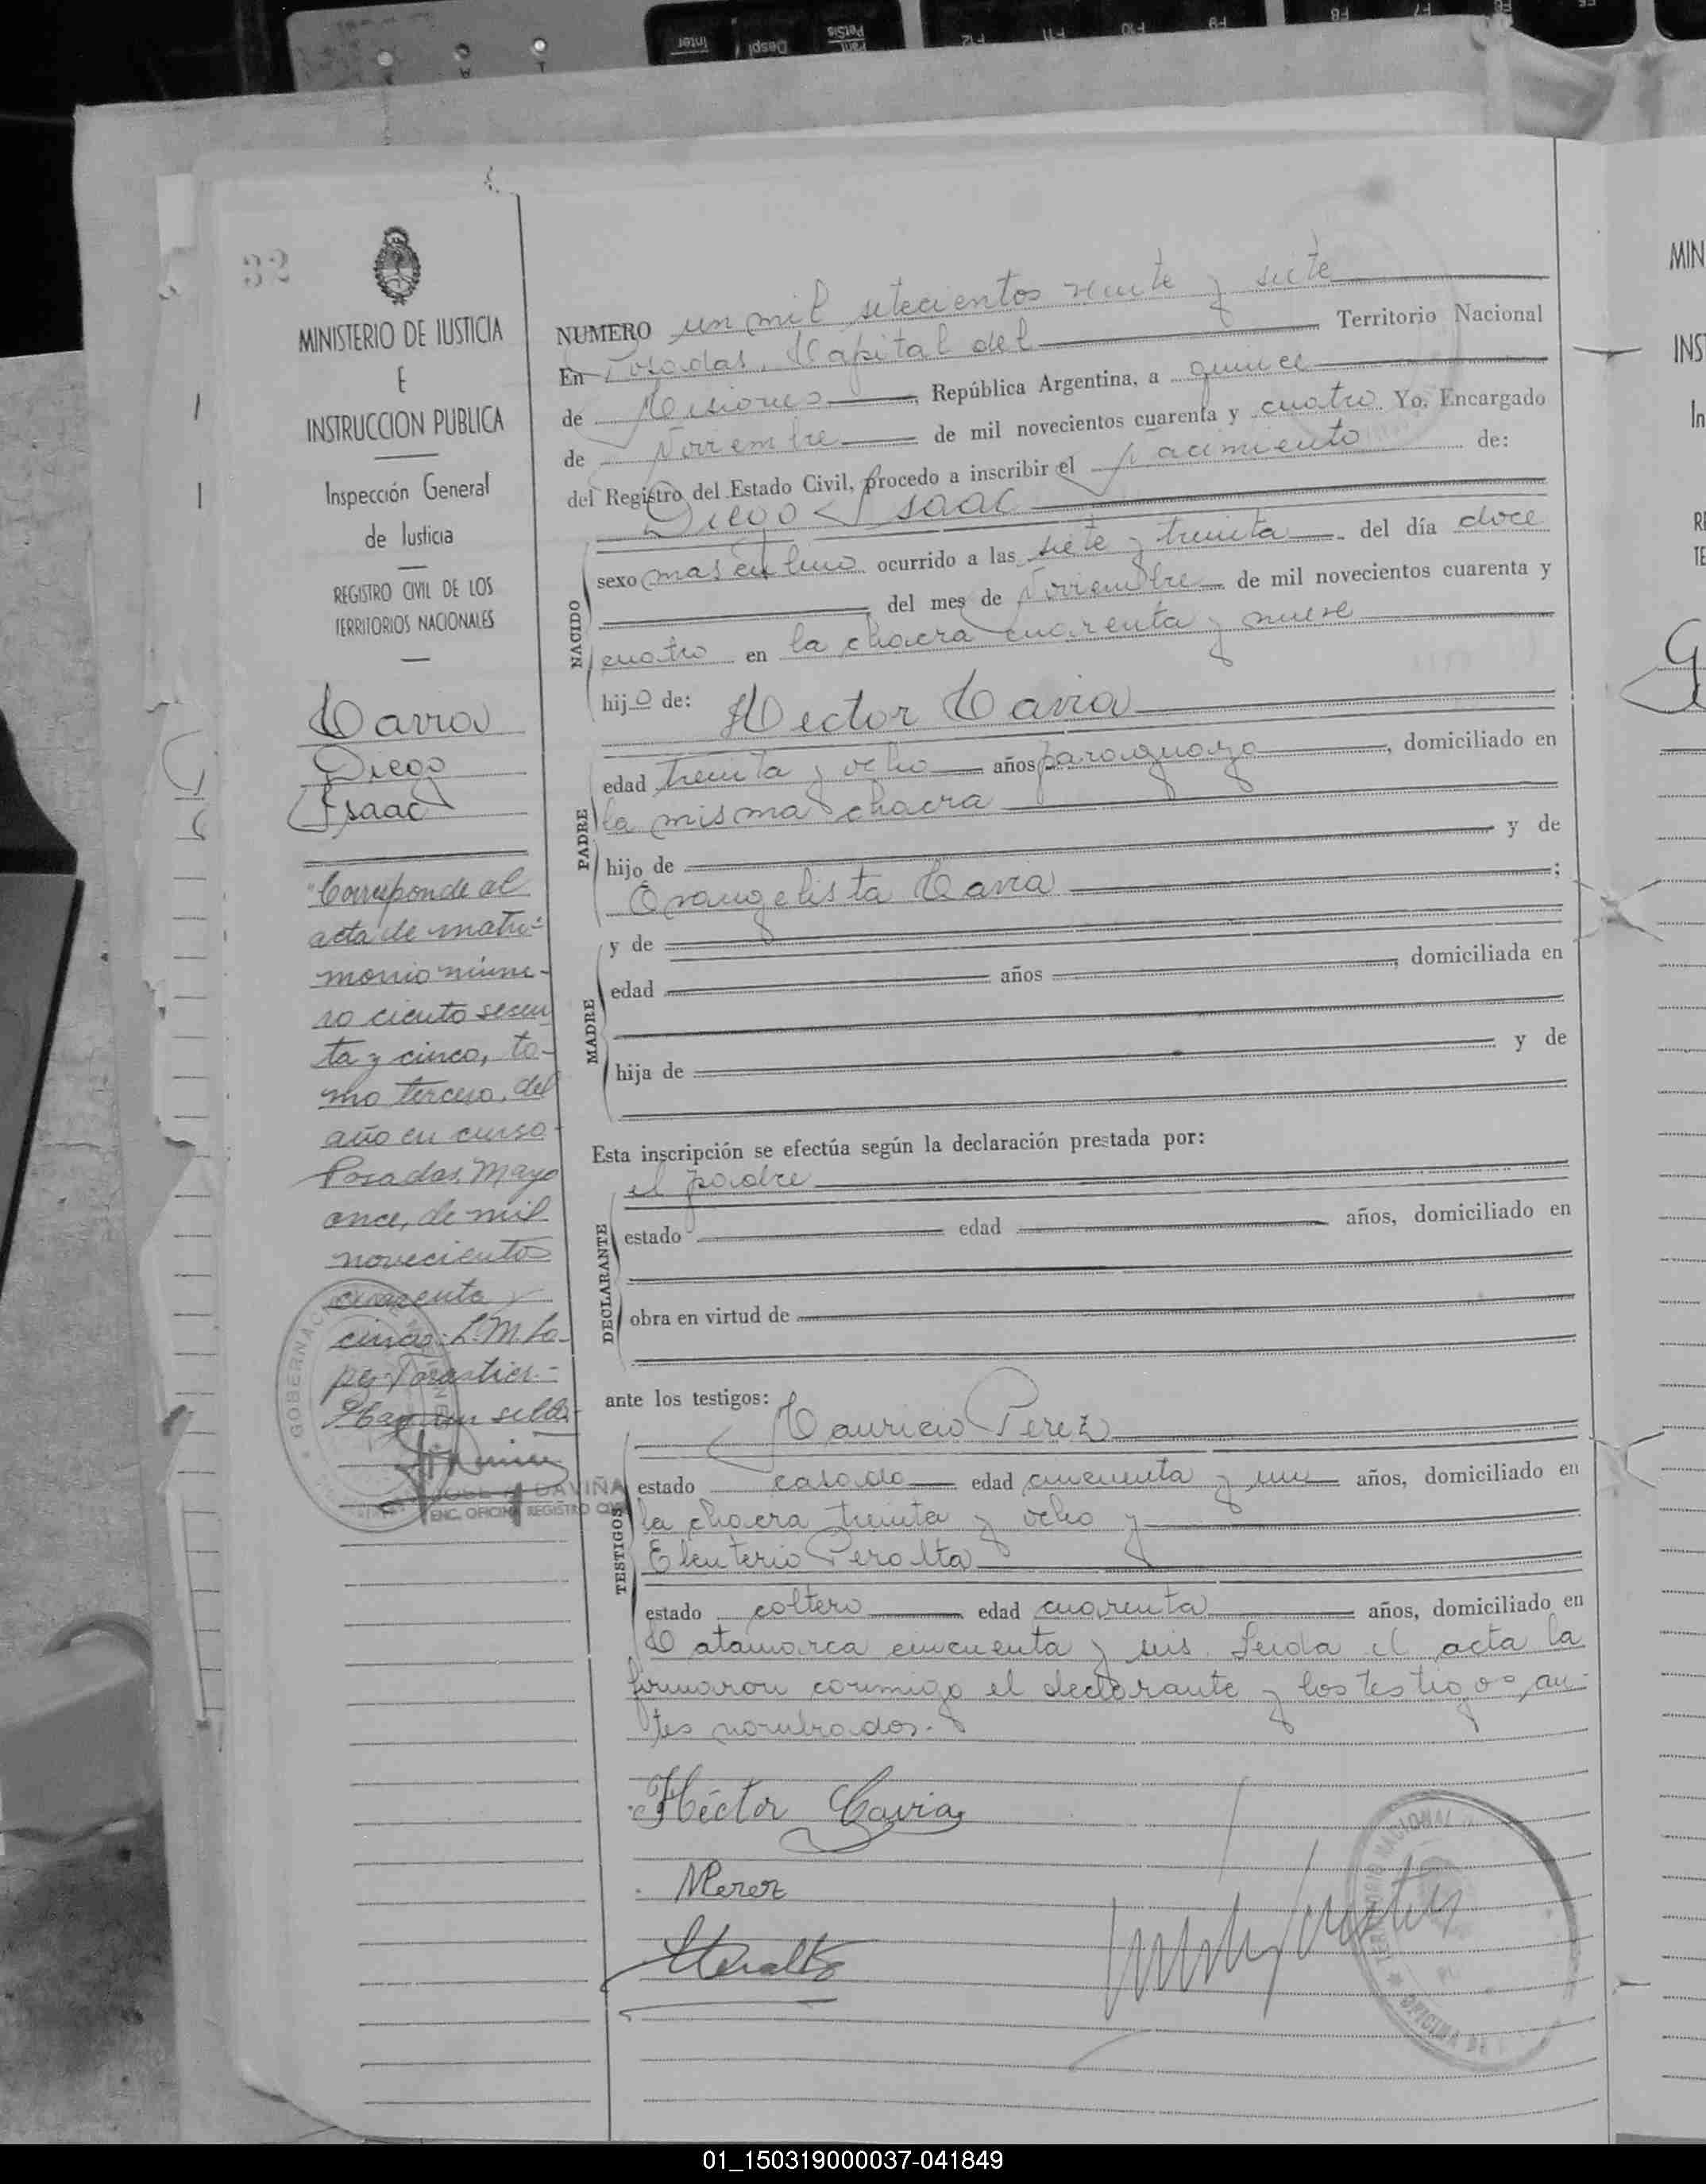 32
MINISTERIO DE JUSTICIA
E
INSTRUCCION PUBLICA
Inspección General
de Justicia
REGISTRO CIVIL DE LOS
TERRITORIOS NACIONALES
Cavia
Diego
Isaac
"Corresponde al
acta de matri-
monio núme-
ro ciento sesen
ta y cinco, to-
mo tercero, del
año en curso
Posadas, Mayo
once, de mil
novecientos
cuarenta y
cinco. L. M. Lo-
pez
Hay un sello.
DAVIÑA
ENC. OFICINA REGISTRO CIVIL
NUMERO un mil setecientos veinte y siete
En Posadas, Capital del Territorio Nacional
de Misiones, República Argentina, a quince
de Noviembre de mil novecientos cuarenta y cuatro Yo, Encargado
del Registro del Estado Civil, procedo a inscribir el Nacimiento de:
Diego Isaac
NACIDO
sexo masculino ocurrido a las siete y treinta del día doce
del mes de Noviembre de mil novecientos cuarenta y
cuatro en la chacra cuarenta y nueve
hijo de: Hector Cavia
PADRE
edad treinta y ocho años paraguayo, domiciliado en
la misma chacra
hijo de y de
Evangelista Cavia ;
MADRE
y de
edad años , domiciliada en
hija de y de
Esta inscripción se efectúa según la declaración prestada por:
el padre
DECLARANTE
estado edad años, domiciliado en
obra en virtud de
ante los testigos:
Mauricio Perez
TESTIGOS
estado casado edad cincuenta y un años, domiciliado en
la chacra treinta y ocho y
Eleuterio Peralta
estado soltero edad cuarenta años, domiciliado en
Catamarca cincuenta y seis. Leida el acta la
firmaron conmigo el declarante y los testigos, an-
tes nombrados.
Héctor Cavia
MPerez
EPeralta
TERRITORIO NACIONAL
OFICINA DE
GOBERNAC
MIN
INS
In
01_150319000037-041849